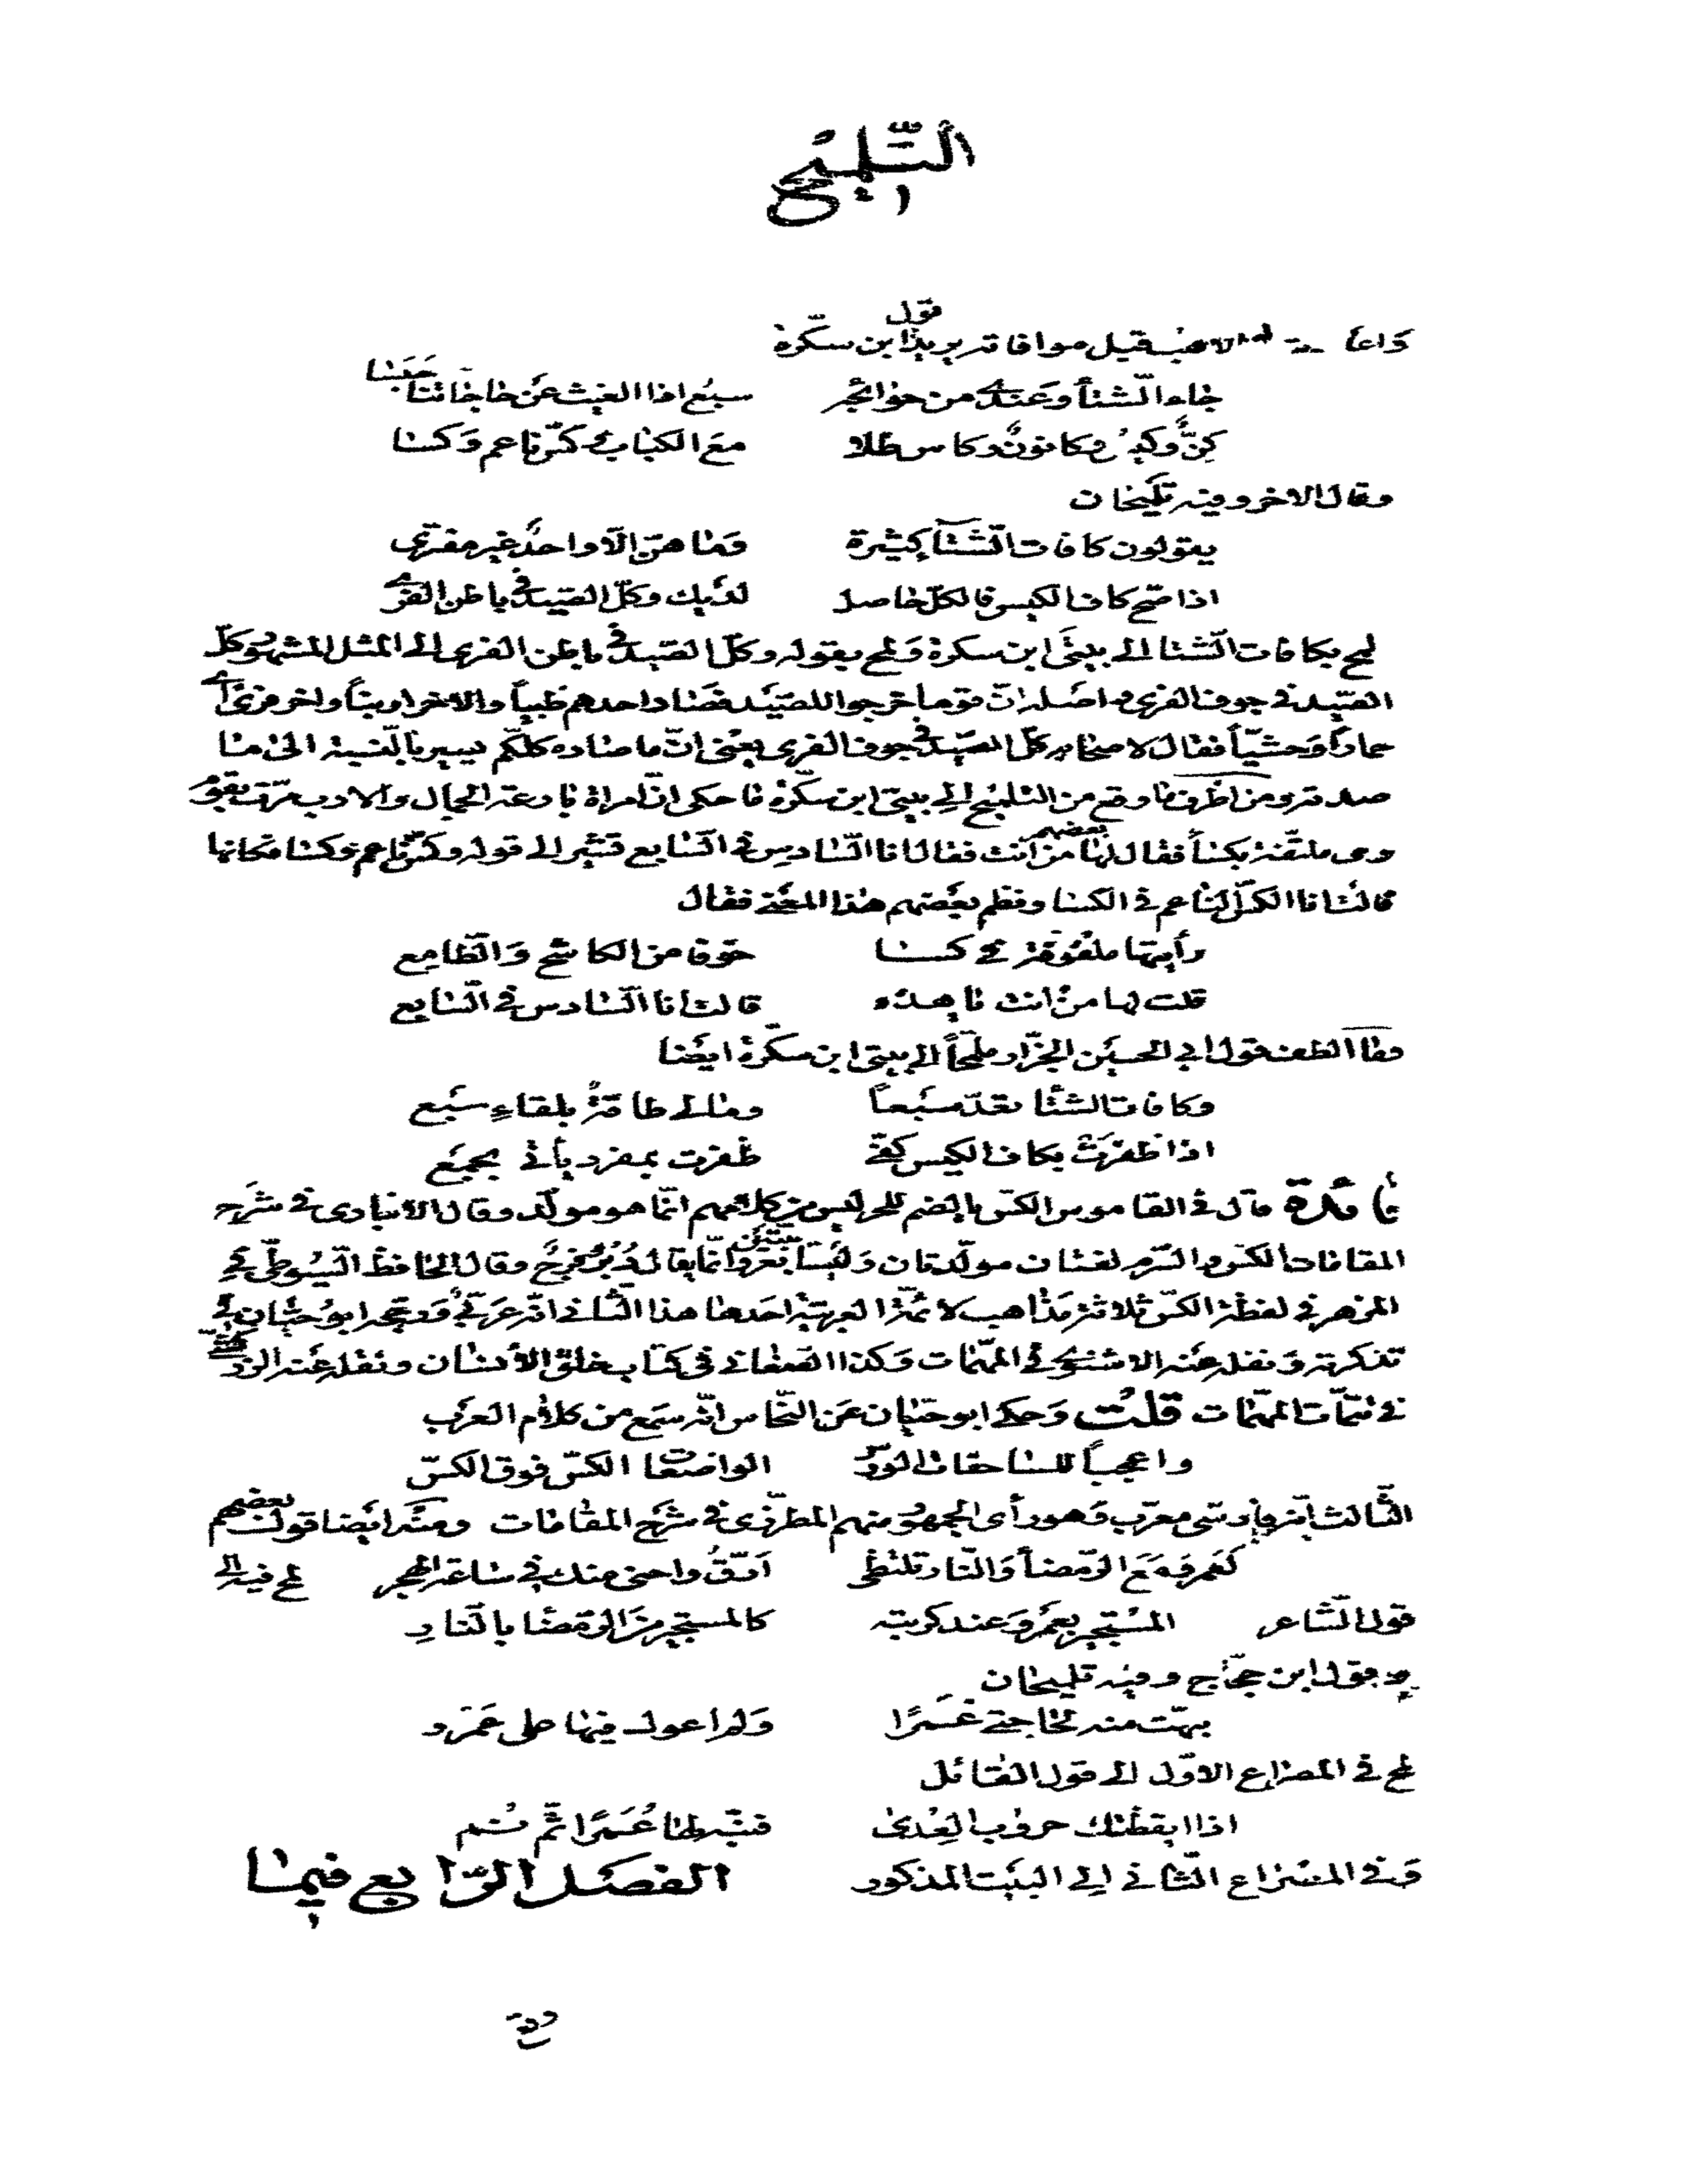 التلميح
قول
قبل موافاته يريد ابن سكّرة
جاء الشتاء وعندي من حوائجه سبع اذا الغيث عن حاجاتنا حبسا
كنّ وكيس وكانون وكاس طلا مع الكباب وكسّ ناعم وكسا
وقال الاخر وفيه تلميحان
يقولون كافات الشتاء كثيرة وما هنّ الّا واحد غير مفترى
اذا صح كاف الكيس فالكلّ حاصل لديك وكلّ الصيد في باطن الفرى
لمح بكافات الشتا الى بيتي ابن سكرة ولمح بقوله وكلّ الصيد في باطن الفرى الى المثل المشهور كلّ
الصيد في جوف الفرى واصله انّ قوما خرجوا للصيد فصاد احدهم ظبياً والاخر اربناً واخر فرى اي
حماراً وحشيّاً فقال لاصحابه كلّ الصيد في جوف الفرى يعني انّ ما صاده كلكم يسير بالنسبة الى ما
صدته ومن اظرف ما وقع من التلميح الى بيتي ابن سكّرة ما حكى انّ امراة بارعة الجمال والادب مرّت بقوم
وهى ملتفّة بكساً فقال لها بعضهم من انت فقالت انا السّادس في السّابع تشير الى قوله وكسّ ناعم وكسا فكانها
قالت انا الكسّ الناعم في الكسا ونظم بعضهم هذا المعنى فقال
رأيتها ملفوفة في كسا خوفا من الكاشح والطامع
قلت لها من انت يا هذه قالت انا السّادس في السّابع
وما الطف قول ابي الحسين الجزّار ملمّحاً الى بيتي ابن سكّرة ايضا
وكافات الشتا تعدّ سبعاً ومالى طاقة بلقاء سبع
اذا ظفرت بكاف الكيس كفّي ظفرت بمفرد ياتي بجمع
فائدة قال في القاموس الكسّ بالضم للحر ليس من كلامهم انّما هو مولّد وقال الانبارى في شرح
المقامات الكسّ والسّرم لغتان مولّدتان وليستا بعربيّتين وانّما يقال دبر وفرج وقال الحافظ السّيوطي في
المزهر في لفظة الكسّ ثلاثة مذاهب لائمّة العربيّة احدها هذا الثاني انّه عربي ورجّحه ابو حيّان في
تذكرته ونقله عنه الاسنوي في المهمّات وكذا الصغاني في كتاب خلق الانسان ونقله عنه الزركشي
في مهمّات المهمّات قلت وحكى ابو حيّان عن النحّاس انّه سمع من كلام العرب
واعجباً للساحقات الورس الواضعات الكسّ فوق الكسّ
الثّالث انّه فارسّى معرّب وهو رأى الجمهور منهم المطرّزى في شرح المقامات ومنه ايضا قول بعضهم
لعمرو مع الرّمضاء والنّار تلتظي ارقّ واحنى منك في ساعة الهجر لمح فيه الى
قول الشّاعر المستجير بعمرو عند كربته كالمستجير من الرّمضا بالنّار
وقول ابن حجّاج وفيه تلميحان
نبّهت منه لحاجتي عمرا ولم اعول فيها على عمرو
لمح في المصراع الاوّل الى قول القائل
اذا ايقظتك حروب العدى فنبّه لها عمرا ثمّ نم
وفي المصراع الثّاني الى البيت المذكور الفصل الرّابع فيما